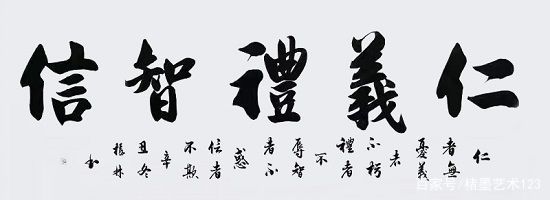 仁義禮智信
仁
者無
憂義
者
不朽
禮者
不
辱智
者不
惑
信者
不欺
辛
丑冬
振林
書
百家号/桔墨艺术123